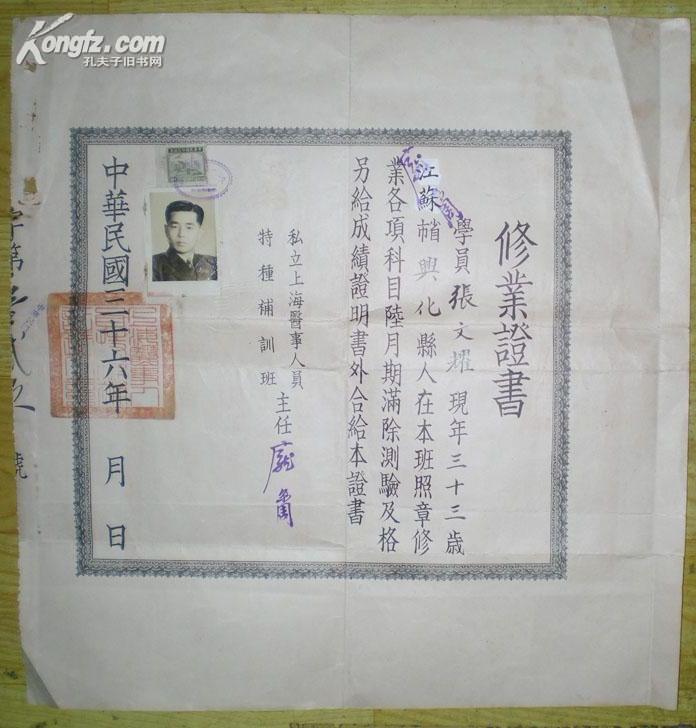 Kongfz.com
孔夫子旧书网
修業證書
學員張文耀現年三十三歲
江蘇省興化縣人在本班照章修
業各項科目陸月期滿除測驗及格
另給成績證明書外合給本證書
私立上海醫事人員
特種補訓班
主任
中華民國三十六年 月 日
字第
號